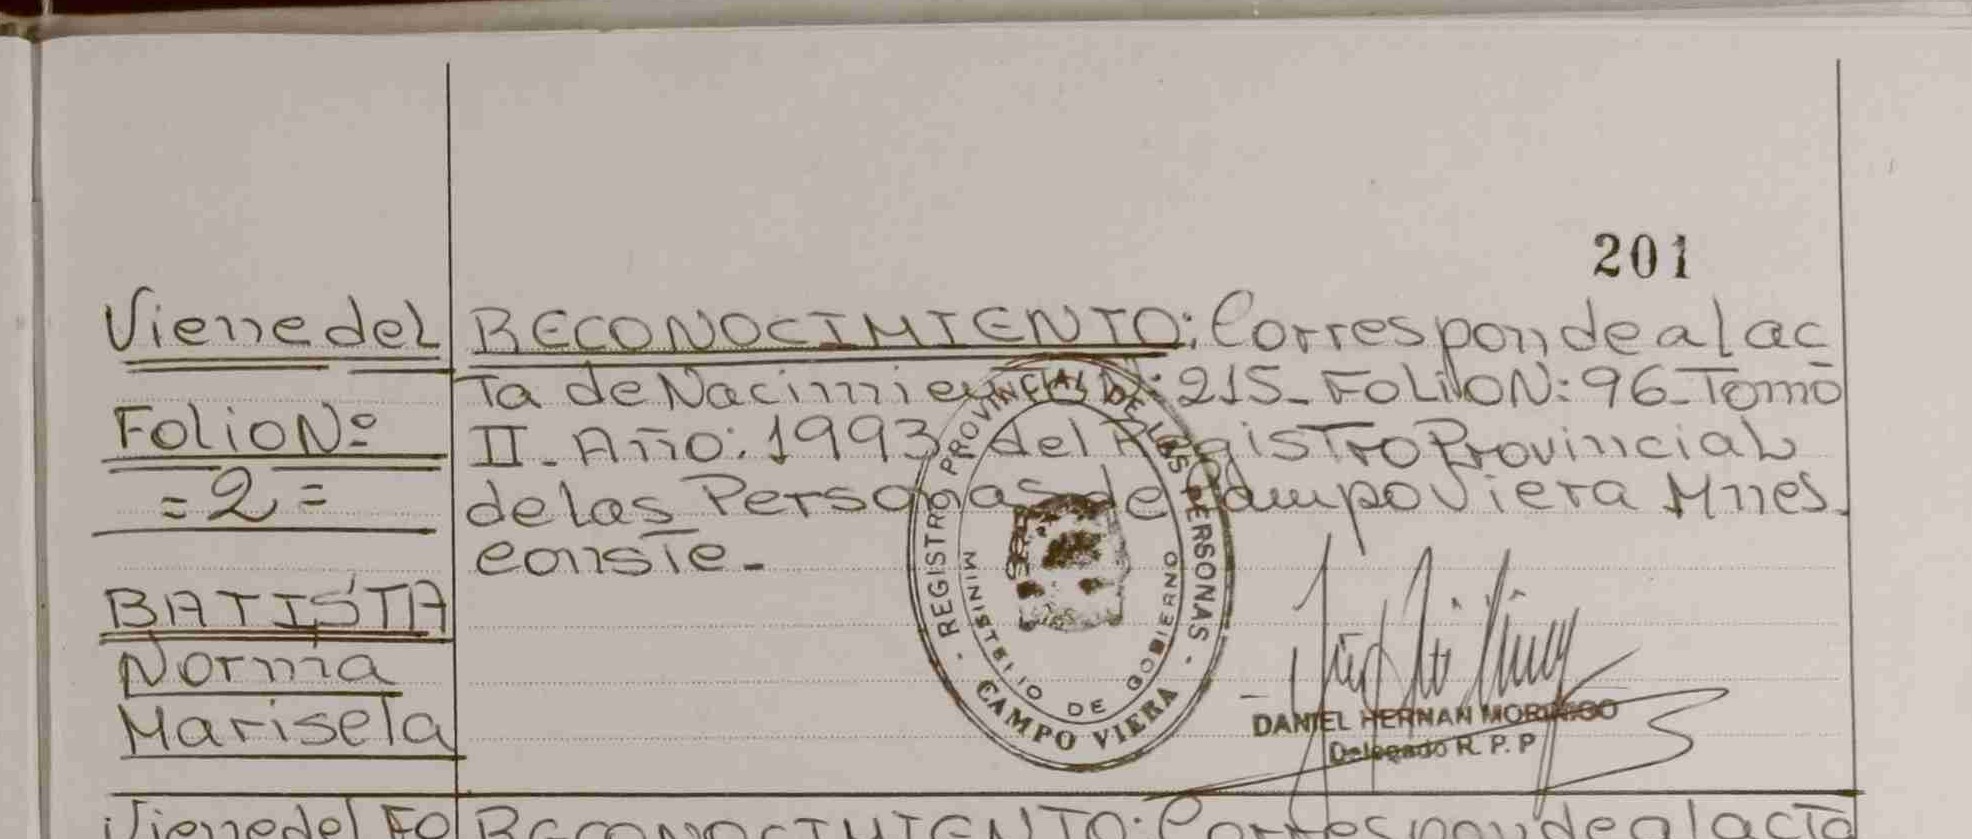 201
Viene del
Folio Nº
=2=
BATISTA
Norma
Marisela
RECONOCIMIENTO: Corresponde al ac
ta de Nacimien N: 215_ Folio N: 96_Tomo
II_ Año: 1993 del Registro Provincial
de las Personas de Campo Viera Mnes.
conste._
REGISTRO PROVINCIAL DE LAS PERSONAS
MINISTERIO DE GOBIERNO
CAMPO VIERA
DANIEL HERNAN MORINIGO
Delegado R. P. P
Viene del Fo
RECONOCIMIENTO: Corresponde al acta